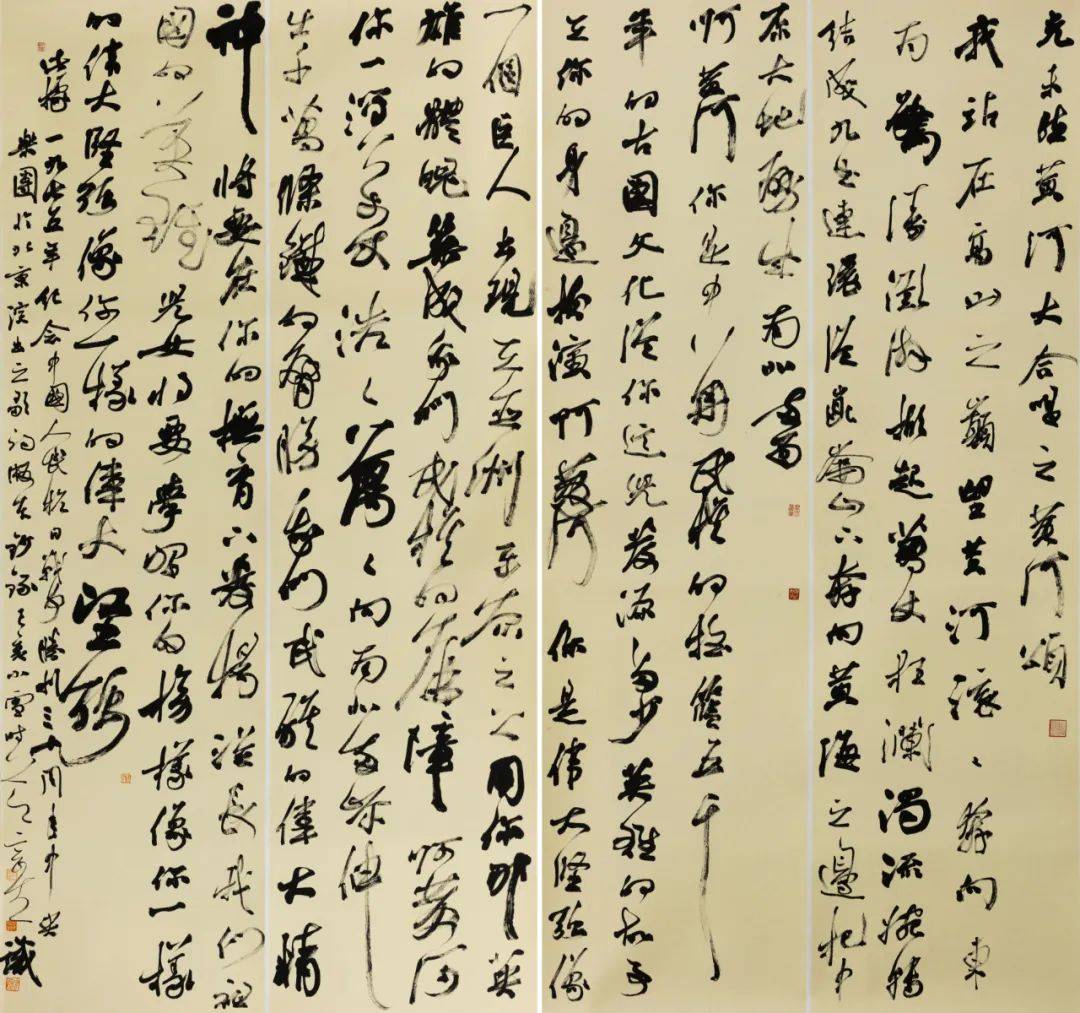 光未然黄河大合唱之黄河頌
我站在高山之巔望黄河滾〻奔向東
南驚濤澎湃掀起萬丈狂瀾濁流婉轉
結成九曲連環從崑崙山下奔向黄海之邊把中
原大地劈成南北兩面
啊黄河你是中华民族的搖籃五千
年的古國文化從你這兒發源多少英雄的故事
在你的身邊扮演啊黄河你是偉大堅強像
一個巨人出現在亞洲平原之上用你那英
雄的體魄築成我們民族的屏障啊黄河
你一瀉萬丈浩〻蕩〻向南北兩岸伸
出千萬條鐵的臂膀我們民族的偉大精
神將要在你的撫育下發揚滋長我們祖
國的英雄兒女將要學習你的榜樣像你一樣
的偉大堅強像你一樣的偉大堅強
此稿一九七五年纪念中國人民抗日戰爭勝利三十周年中央
樂團於北京演出之歌詞 小雪時 識